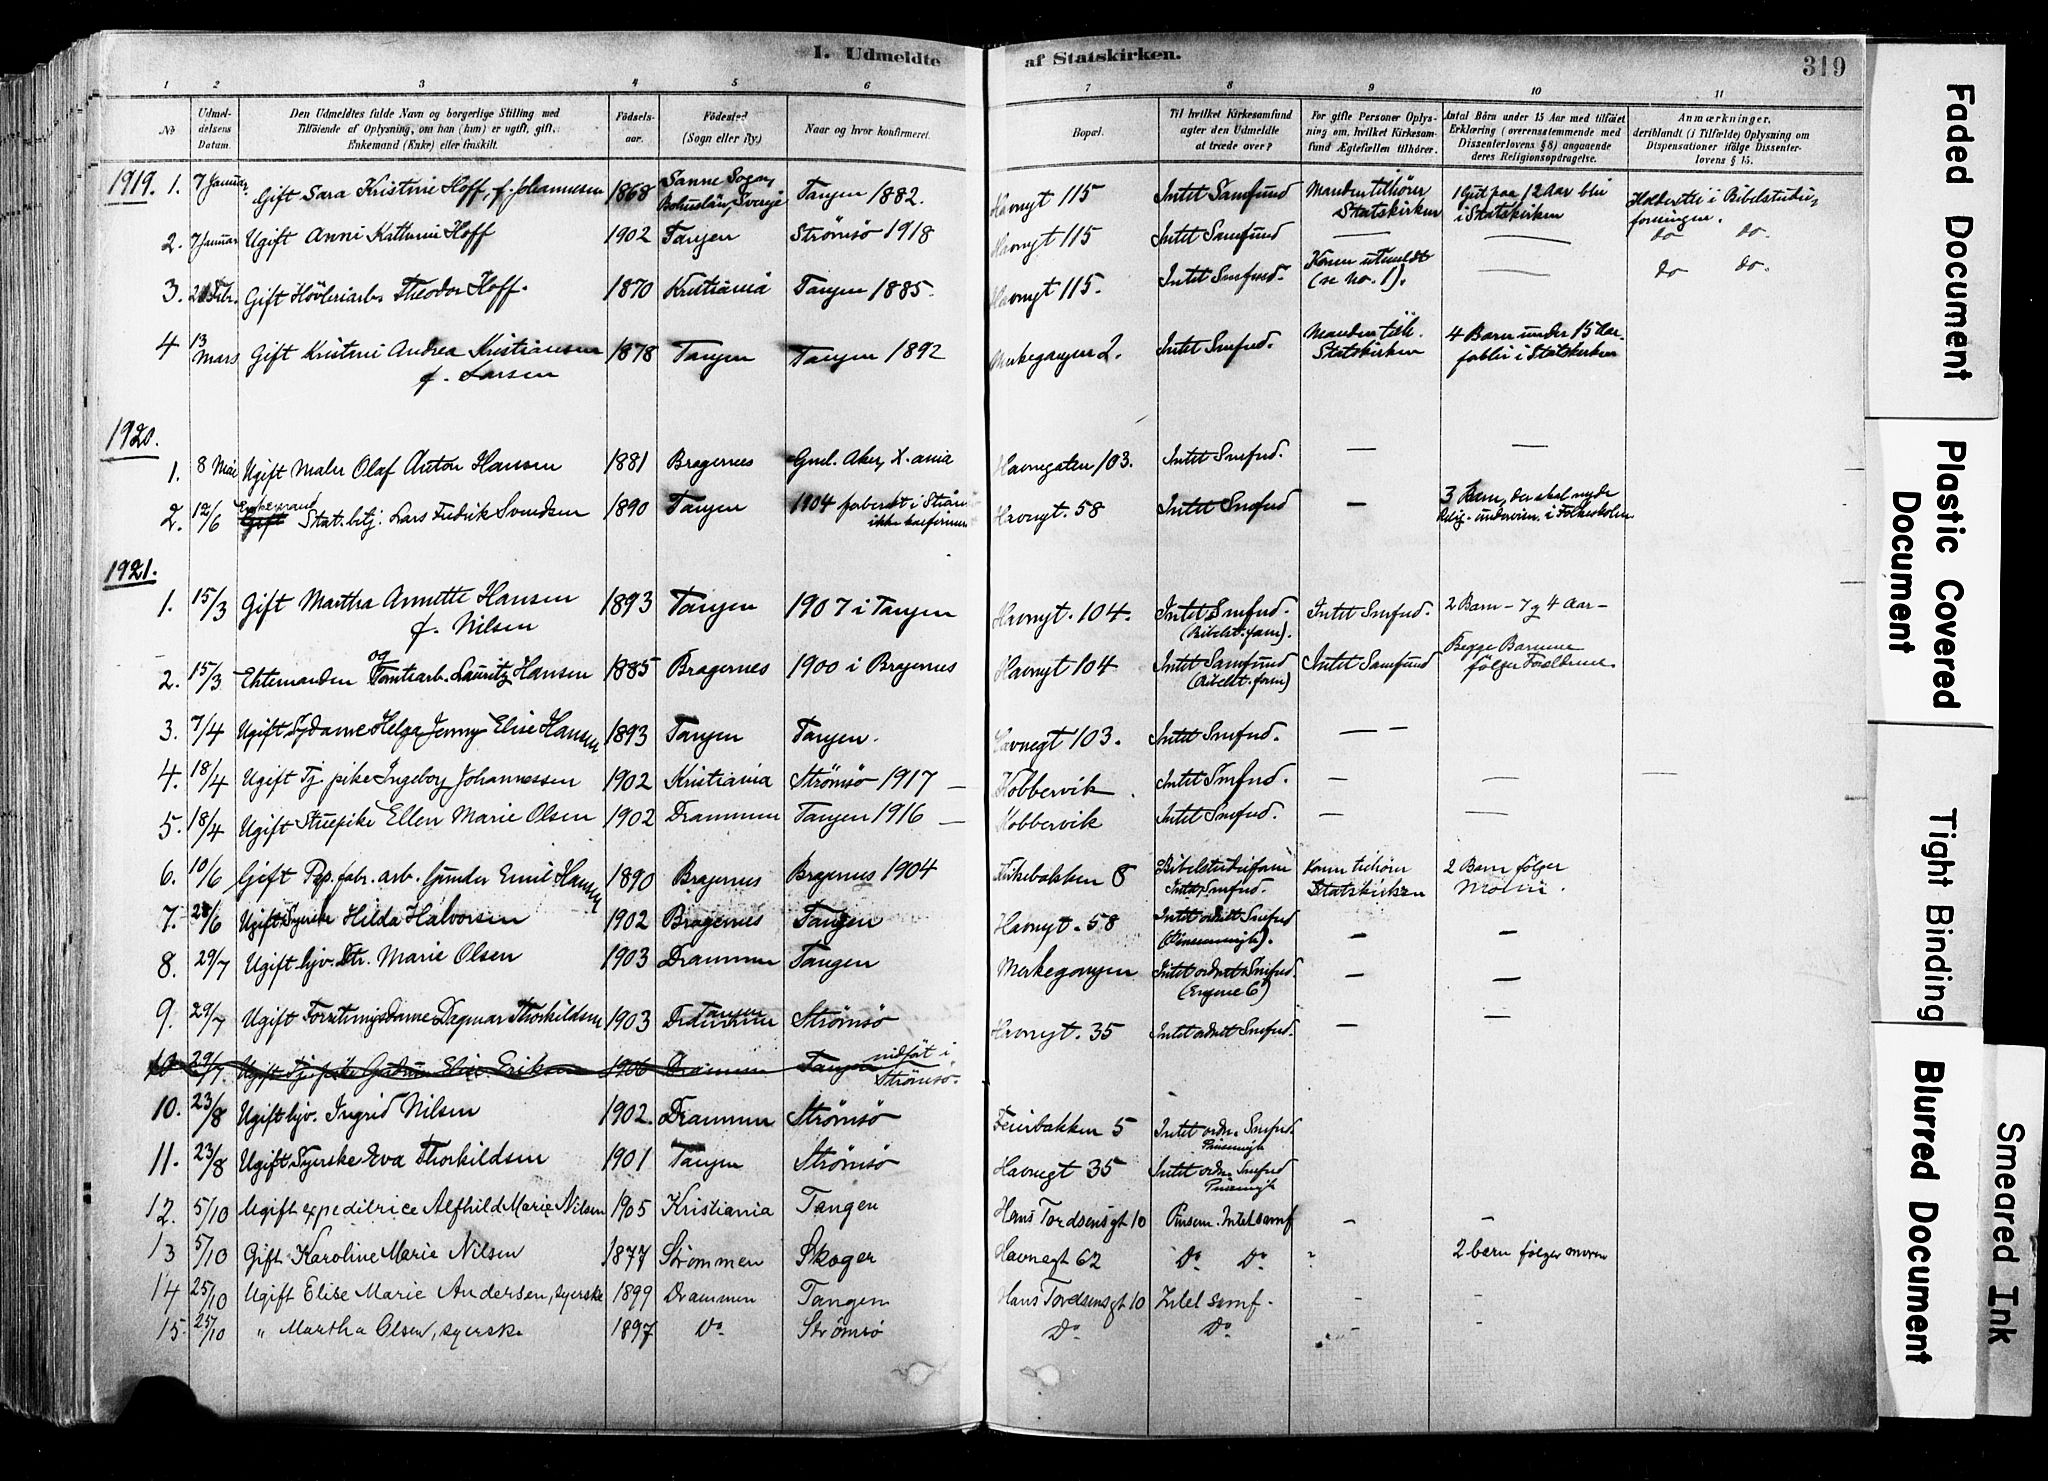 I. Udmeldte af Statskirken. 319
1 2 3 4 5 6 7 8 9 10 11
No Udmeldelsens Datum. Den Udmeldtes fulde Navn og borgerlige Stilling med Tilføiende af Oplysning, om han (hun) er ugift, gift, Enkemand (Enke) eller fraskilt. Fødselsaar. Fødested (Sogn eller By). Naar og hvor konfirmeret. Bopæl. Til hvilket Kirkesamfund agter den Udmeldte at træde over? For gifte Personer Oplysning om, hvilket Kirkesamfund Ægtefællen tilhører. Antal Børn under 15 Aar med tilføiet Erklæring (overensstemmende med Dissenterlovens § 8) angaaende deres Religionsopdragelse. Anmærkninger, deriblandt (i Tilfælde) Oplysning om Dispensationer ifølge Dissenterlovens § 15.
1919. 1. 7 Januar. Gift Sara Kristine Hoff, f. Johannesen 1868 Sanne Sogn, Bohuslän, Sverige Tangen 1882. Havnegt 115 Intet Samfund Manden tilhører Statskirken 1 Gut paa 12 Aar blir i Statskirken Holder sig i Bibelstudieforeningen.
2. 7 Januar Ugift Anni Kathrine Hoff 1902 Tangen Strømsö 1918 Havnegt 115 Intet Samfund — — do do.
3. Febr. Gift Høvleriarb. Theodor Hoff. 1870 Kristiania Tangen 1885. Havnegt 115. Intet Smfund. Konen utmeldt (se no. 1). — do do.
4 13 Mars Gift Kristine Andrea Kristiansen f. Larsen 1878 Tangen Tangen 1892 Merkegangen 2. Intet Smfnd. Manden tilh. Statskirken 4 Barn under 15 Aar forblir i Statskirken
1920.
1. 8 Mai Ugift Maler Olaf Anton Hansen 1881 Bragernes Gml. Aker, X.ania Havnegaten 103. Intet Smfnd. — —
2. 12/6 Enkemand Gift Stat.btj. Lars Fredrik Svendsen 1890 Tangen 1904 forberedt i Strøms ikke konfirmert Havnegt. 58 Intet Smfnd — 3 Barn, der skal nyde Relig.-undervisn. i Folkeskolen
1921.
1. 15/3 Gift Martha Annette Hansen f. Nilsen 1893 Tangen 1907 i Tangen Havnegt. 104. Intet Smfnd. (Bibelst. foren). Intet Smfnd. 2 Barn – 7 og 4 Aar –
2. 15/3 Ektemanden og Tomtearb. Lauritz Hansen 1885 Bragernes 1900 i Bragernes Havnegt 104 Intet Samfund (Bibelst. foren) Intet Samfund Begge Barnene følger Forældrene
3. 7/4 Ugift Sydame Helga Jenny Elise Hansen 1893 Tangen Tangen. Havnegt 103. Intet Smfnd. — —
4. 18/4 Ugift Tj. pike Ingeborg Johannessen 1902 Kristiania Strömsö 1917 — Kobbervik. Intet Smfnd. — — —
5. 18/4 Ugift Stuepike Ellen Marie Olsen 1902 Drammen Tangen 1916 — Kobbervik Intet Smfnd. — —
6. 10/6 Gift Pap. fabr. arb. Gunder Emil Hansen 1890 Bragernes Bragernes 1904 8 Bibelstudieforen Intet Smfnd. Konen tilhører Statskirken 2 Barn følger Moren.
7. 28/6 Ugift Syerske Hilda Halvorsen 1902 Bragernes Tangen Havnegt. 58 Intet ordnet Smfnd (Pinsemenigh). — —
8. 29/7 Ugift hjv. Dtr. Marie Olsen 1903 Drammen Tangen Merkegangen Intet ordnet Smfnd. — —
9. 29/7 Ugift Forretningsdame Dagmar Thorkildsen 1903 Tangen Drammen Strömsö Havnegt. 35 Intet ordnet Smfnd. — —
10 29/7 Ugift Tj. pike Gudrun Elise Eriksen 1906 Drammen Tangen indført i Strømsö.
10. 23/8 Ugift hjv. Ingrid Nilsen 1902. Drammen Strömsö Feierbakken 5 Intet ordn. Smfnd. Pinsemgh
11. 23/8 Ugift Syerske Eva Thorkildsen 1901 Tangen Strömsö Havnegt 35 Intet ordn. Smfnd Pinsemgh
12. 5/10 Ugift expeditrice Alfhild Marie Nilsen 1905 Kristiania Tangen Hans Tordsensgt 10 Pinsem. Intet samf — —
13 5/10 Gift Karoline Marie Nilsen 1877 Strømmen Skoger Havnegt 62 Do. Do. 2 barn følger moren
14 25/10 Ugift Elise Marie Andersen, syerske 1899 Drammen Tangen Hans Tordsensgt 10 Intet samf. - -
15. 25/10 " Martha Olsen, syerske 1897 Do. Strömsö Do. Do. - -
Faded Document
Plastic Covered Document
Tight Binding
Blurred Document
Smeared Ink